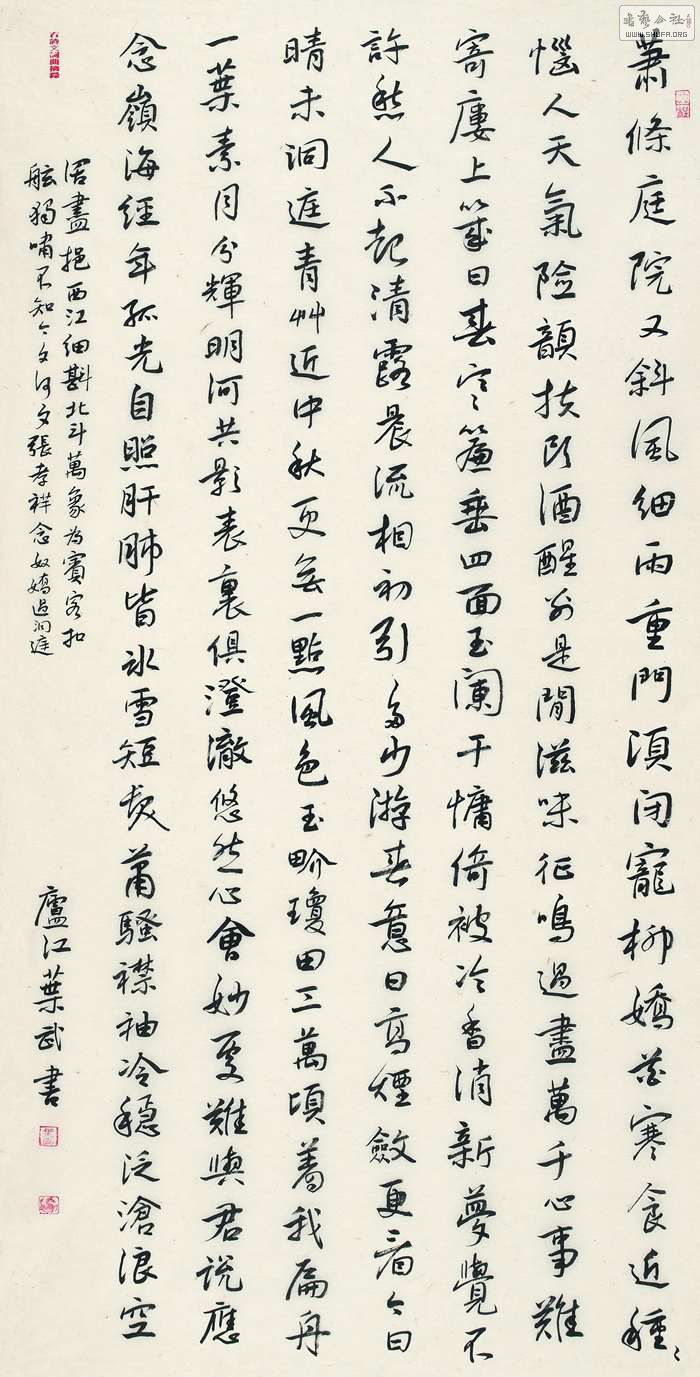 蕭條庭院又斜風細雨重門須閉寵柳嬌花寒食近種〻
惱人天氣險韻扶頭酒醒別是閒滋味征鴻過盡萬千心事難
寄樓上幾日春寒簾垂四面玉闌干慵倚被冷香消新夢覺不
許愁人不起清露晨流桐初引多少游春意日高煙斂更看今日
晴未洞庭青艸近中秋更無一點風色玉畍瓊田三萬頃著我扁舟
一葉素月分輝明河共影表裏俱澄澈悠然心會妙處難與君說應
念嶺海經年孤光自照肝肺皆冰雪短髮蕭騷襟袖冷穩泛滄浪空
闊盡挹西江細斟北斗萬象為賓客扣
舷獨嘯不知今夕何夕張孝祥念奴嬌過洞庭
廬江葉武書
书艺公社
WWW.SHUFA.ORG